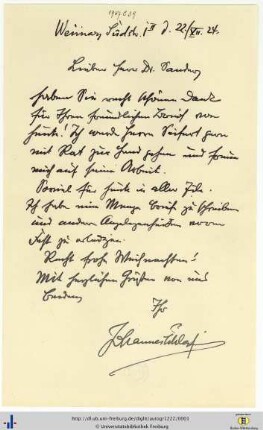 Weimar, Südstr. 1 II d. 22/XII. 24.
Lieber Herr Dr. Sander,
haben Sie recht schönen Dank
für Ihren freundlichen Bericht von
heute! Ich werde Herrn Seifert gern
mit Rat zur Hand gehen und freue
mich auf seine Arbeit.
Soviel für heute in aller Eile.
Ich habe eine Menge Briefe zu schreiben
und andere Angelegenheiten vorm
Fest zu erledigen.
Recht frohe Weihnachten!
Mit herzlichen Grüßen von uns
beiden
Ihr
Johannes Schlaf
© Universitätsbibliothek Freiburg